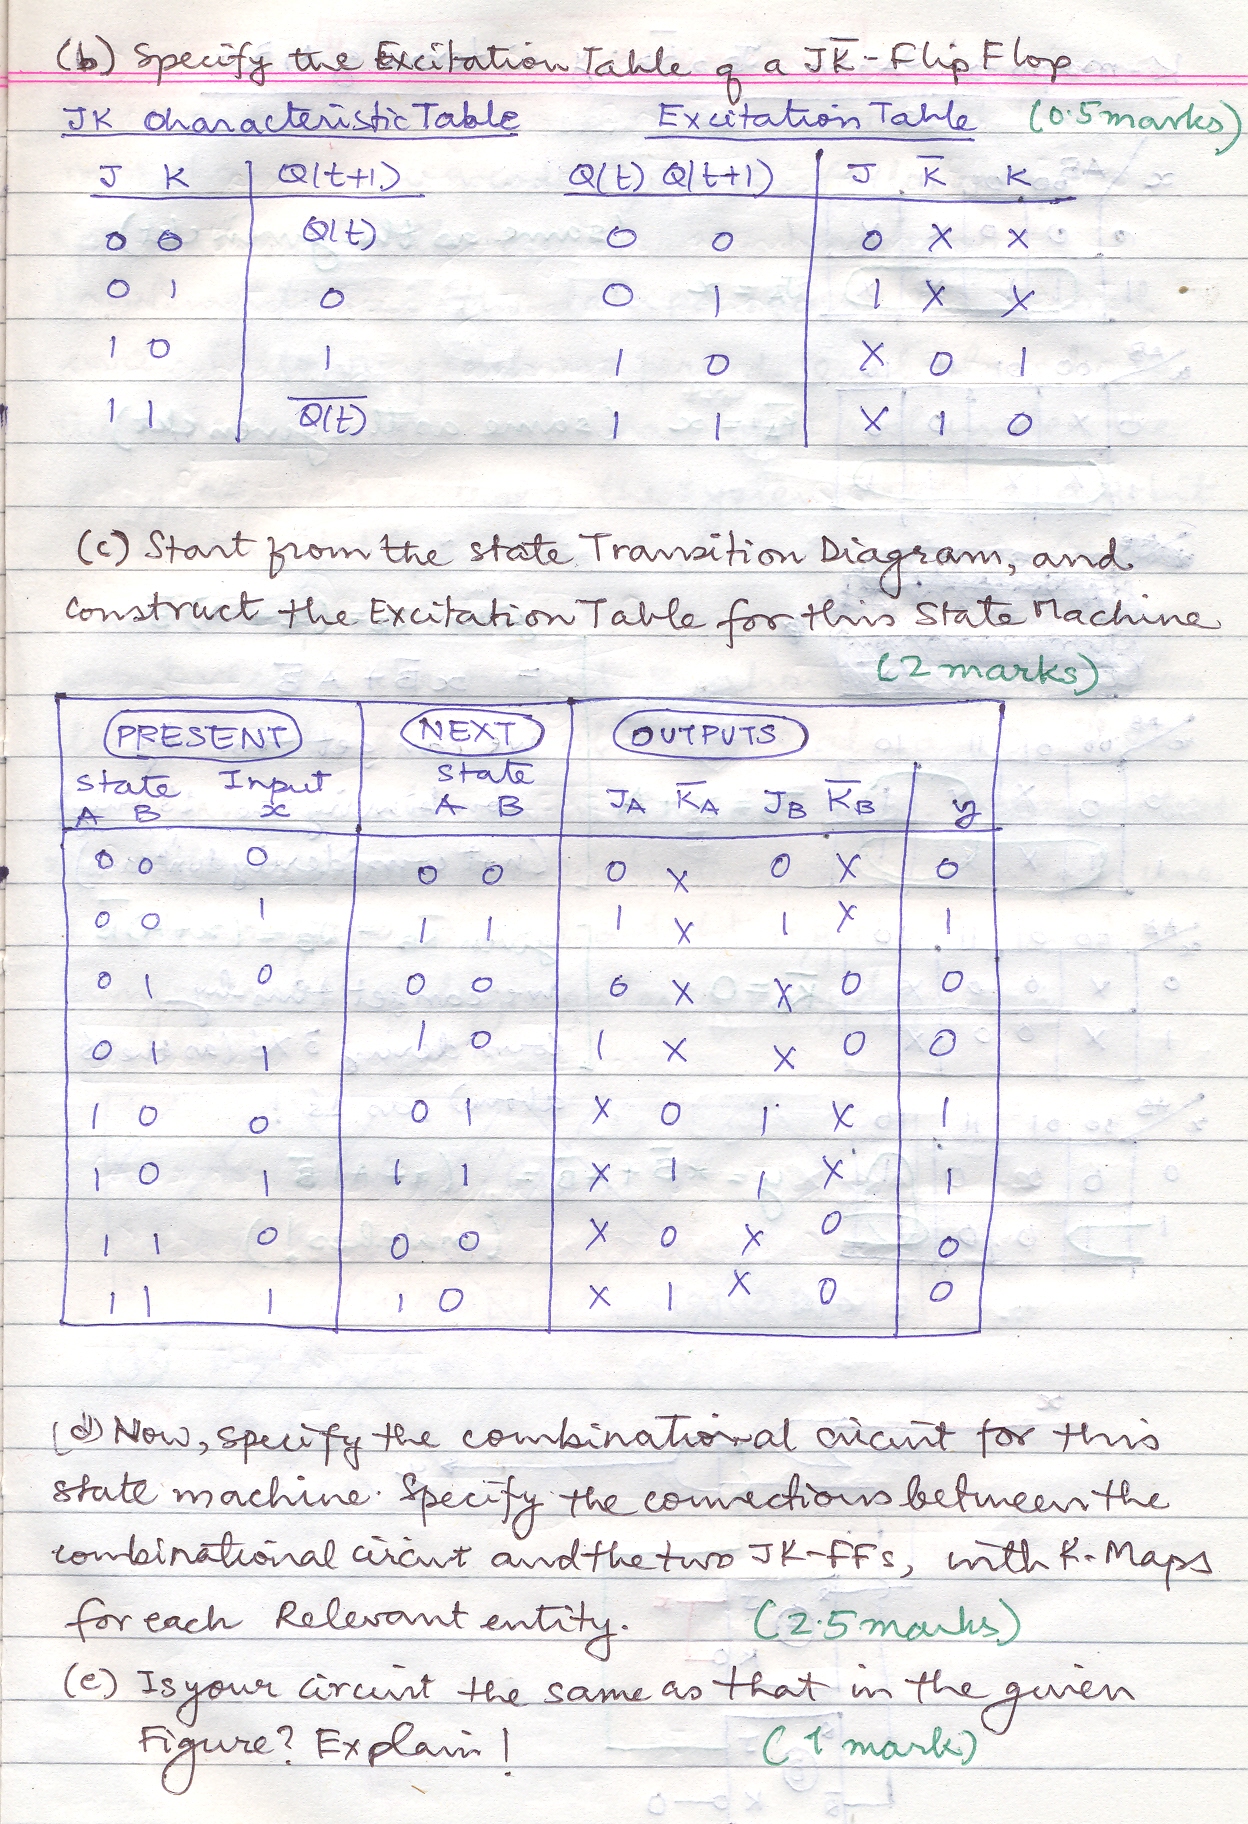 (b) Specify the Excitation Table of a JK̅-Flip Flop
JK Characteristic Table Excitation Table (0.5 marks)
J K Q(t+1) Q(t) Q(t+1) J K̅ K
0 0 Q(t) 0 0 0 X X
0 1 0 0 1 1 X X
1 0 1 1 0 X 0 1
1 1 Q̅(̅t̅)̅ 1 1 X 1 0
(c) Start from the state Transition Diagram, and
construct the Excitation Table for this State Machine
(2 marks)
PRESENT NEXT OUTPUTS
State Input State
A B x A B JA K̅A JB K̅B y
0 0 0 0 0 0 X 0 X 0
0 0 1 1 1 1 X 1 X 1
0 1 0 0 0 0 X X 0 0
0 1 1 1 0 1 X X 0 0
1 0 0 0 1 X 0 1 X 1
1 0 1 1 1 X 1 1 X 1
1 1 0 0 0 X 0 X 0 0
1 1 1 1 0 X 1 X 0 0
(d) Now, specify the combinational circuit for this
state machine. Specify the connections between the
combinational circuit and the two JK-FFs, with K-Maps
for each Relevant entity. (2.5 marks)
(e) Is your circuit the same as that in the given
Figure? Explain! (1 mark)